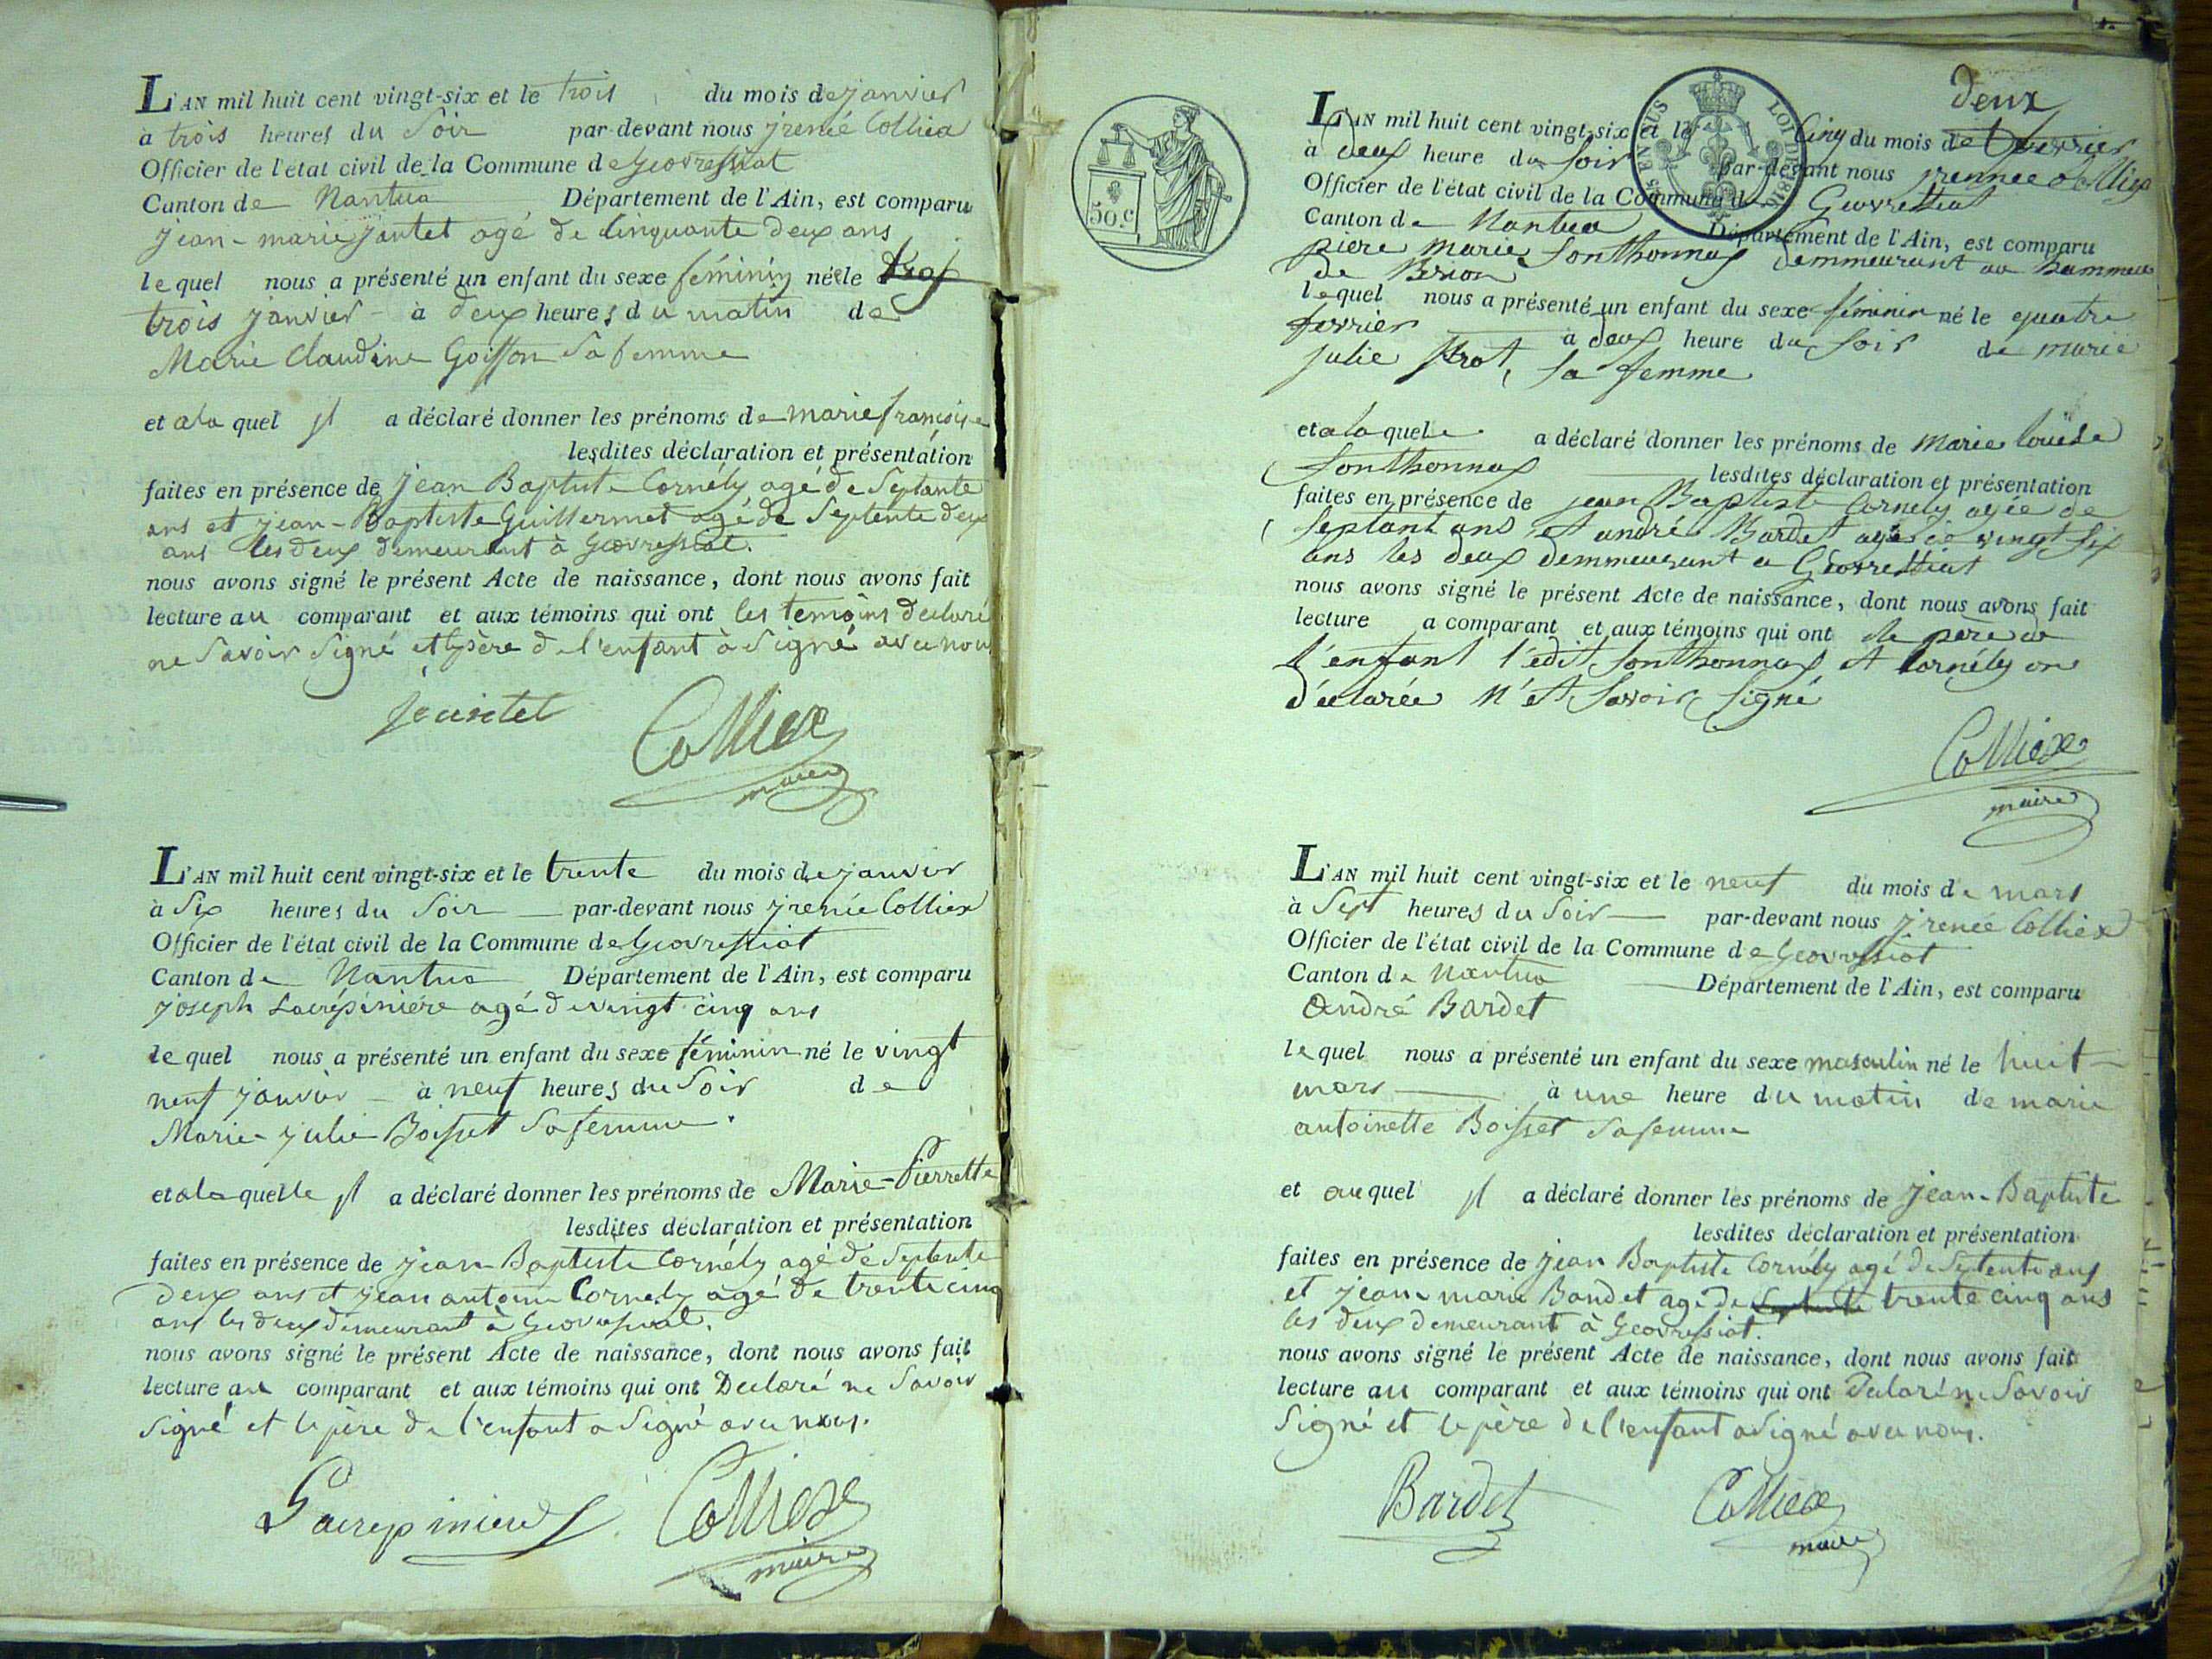 L'AN mil huit cent vingt-six et le trois du mois de janvier
à trois heures du Soir par-devant nous jrenée Colliex
Officier de l'état civil de la Commune de Geovressiat
Canton de Nantua Département de l'Ain, est comparu
jean-marie jantet agé de Cinquante deux ans
lequel nous a présenté un enfant du sexe féminin née le
trois janvier - à deux heures du matin de
Marie Claudine Goiffon Sa femme
et ala quel jl a déclaré donner les prénoms de marie françoise
lesdites déclaration et présentation
faites en présence de jean Baptiste Cornély agé de Septante
ans et jean-Baptiste Guillermet agé de Septente deux
ans les deux demeurant à Geovressiat.
nous avons signé le présent Acte de naissance, dont nous avons fait
lecture au comparant et aux témoins qui ont les temoins declaré
ne Savoir Signé et le père de l'enfant à Signé avec nous
jeantet Colliex
maire
L'AN mil huit cent vingt-six et le trente du mois de janvier
à Six heures du Soir par-devant nous jrenée Colliex
Officier de l'état civil de la Commune de Geovressiat
Canton de Nantua Département de l'Ain, est comparu
joseph Lacrépinière agé de vingt cinq ans
le quel nous a présenté un enfant du sexe féminin né le vingt
neuf janvier - à neuf heures du Soir de
Marie julie Boisset Sa femme.
et ala quelle jl a déclaré donner les prénoms de Marie-Pierrette
lesdites déclaration et présentation
faites en présence de jean Baptiste Cornély agé de Septente
deux ans et jean antoine Cornely agé de trente cinq
ans les deux demeurant à Geovressiat.
nous avons signé le présent Acte de naissance, dont nous avons fait
lecture au comparant et aux témoins qui ont Declaré ne Savoir
Signé et le père de l'enfant a Signé avec nous.
Lacrepiniere Colliex
maire
deux
50 c.
LOI DE 1816
L'AN mil huit cent vingt-six et le Cinq du mois de fevrier
à deux heure du Soir par-devant nous jrennee Colliex
Officier de l'état civil de la Commune de Geovressiat
Canton de Nantua Département de l'Ain, est comparu
piere marie Sonthonnax demmeurant au hammeau
de Brion
lequel nous a présenté un enfant du sexe féminin né le quatre
fevrier à deux heure du Soir de marie
julie sa femme
et ala quelle a déclaré donner les prénoms de marie louise
Sonthonnax lesdites déclaration et présentation
faites en présence de jean Baptiste Cornely agée de
septant ans et andré Bardet agé de vingt six
ans les deux demmeurant a Geovressiat
nous avons signé le présent Acte de naissance, dont nous avons fait
lecture a comparant et aux témoins qui ont le père de
l'enfant l'edit Sonthonnax et Cornély on
déclarée n'et Savoir Signé
Colliex
maire
L'AN mil huit cent vingt-six et le neuf du mois de mars
à Sept heures du Soir par-devant nous jrenée Colliex
Officier de l'état civil de la Commune de Geovressiat
Canton de Nantua Département de l'Ain, est comparu
André Bardet
lequel nous a présenté un enfant du sexe masculin né le huit
mars à une heure du matin de marie
antoinette Boisset Sa femme
et au quel jl a déclaré donner les prénoms de jean-Baptiste
lesdites déclaration et présentation
faites en présence de jean Baptiste Cornély agé de Septente ans
et jean marie Bondet agé de trente cinq ans
les deux demeurant à Geovressiat.
nous avons signé le présent Acte de naissance, dont nous avons fait
lecture au comparant et aux témoins qui ont Declaré ne Savoir
Signé et le père de l'enfant a Signé avec nous.
Bardet Colliex
maire